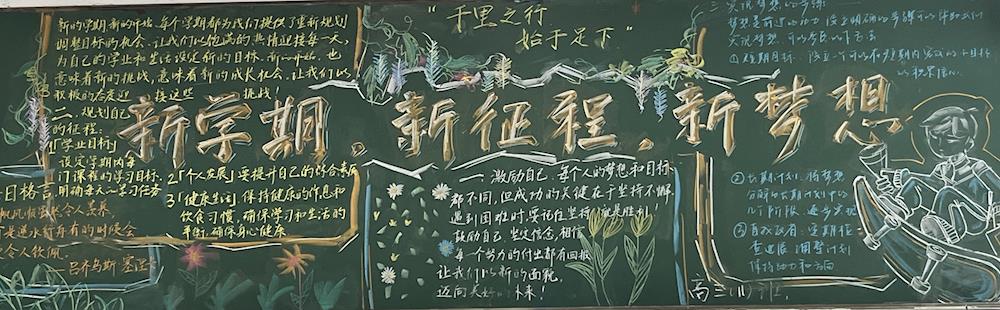 新的学期,新的开始,每个学期都为我们提供了重新规划
调整目标的机会,让我们以饱满的热情迎接每一天,
为自己的学业和生活设定新的目标。新的开始,也
意味着新的挑战,意味着新的成长机会,让我们以
积极的态度迎接这些挑战!
"千里之行
始于足下"
新学期.新征程.新梦想
二、规划自己
的征程:
1「学业目标」
设定学期内每
门课程的学习目标,
明确每天的学习任务
2「个人发展」要提升自己的综合素质
3「健康生活」保持健康的作息和
饮食习惯,确保学习和生活的
平衡,确保身心健康
日格言
令人羡慕
逆水行舟的时候会
令人钦佩
一、激励自己:每个人的梦想和目标
都不同,但成功的关键在于坚持不懈
遇到困难时,要记住坚持就是胜利!
鼓励自己,坚定信念,相信
每一个努力的付出都有回报
让我们以新的面貌,
迈向美好的未来!
三、实现梦想的步骤:
①短期目标:
②长期计划:将梦想
分解为长期计划中的
几个阶段,逐步实现
③自我改善:定期检
查进展,调整计划
保持动力和方向
高三(11)班